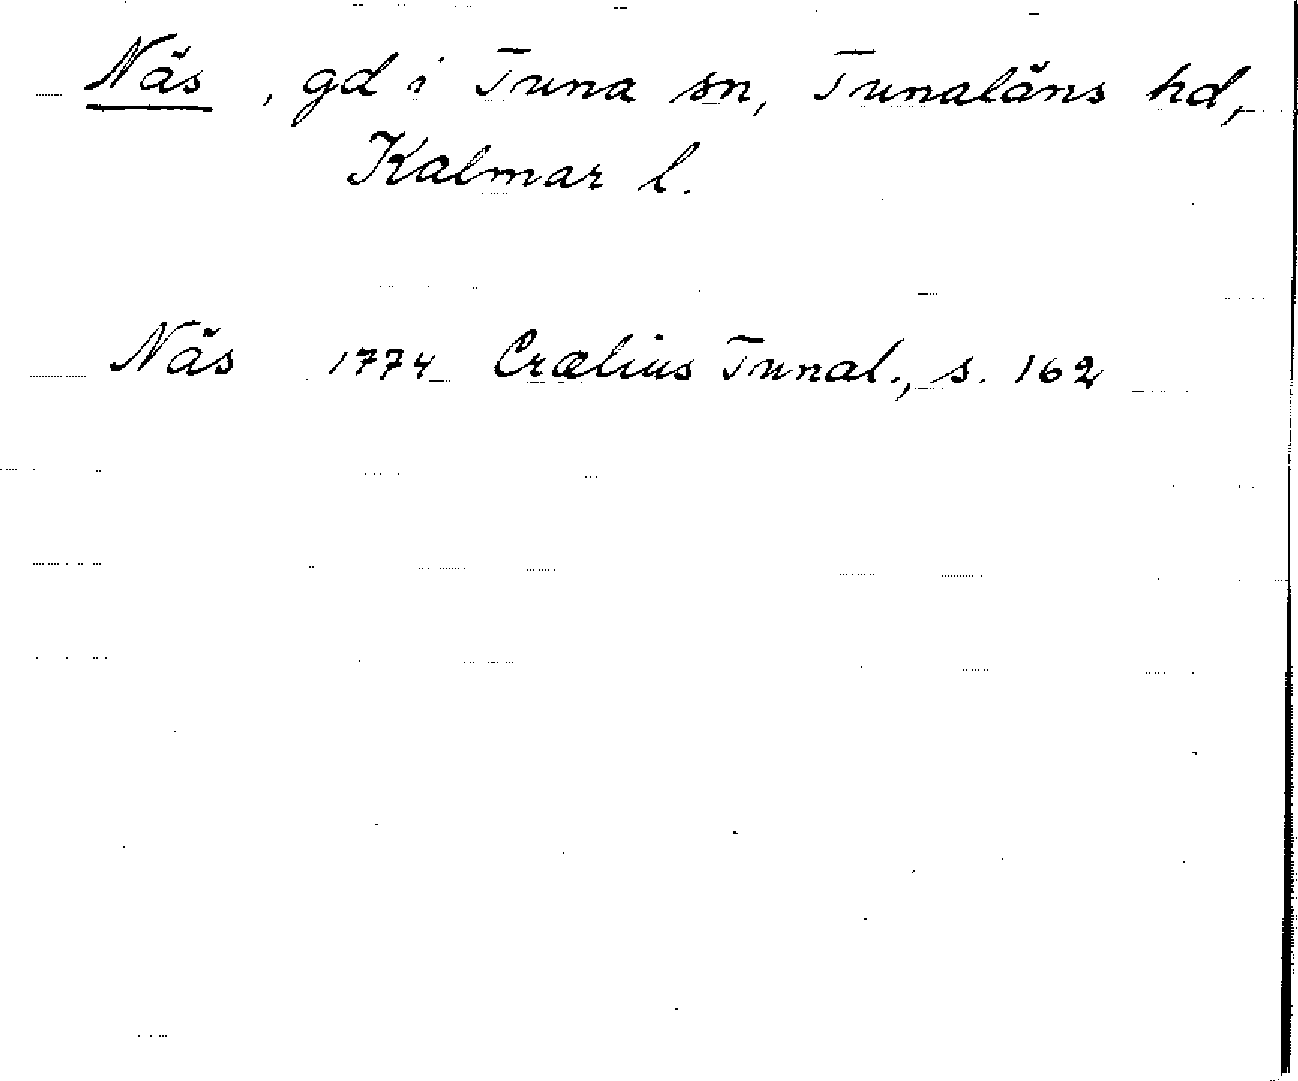 Näs, gd i Tuna sn, Tunaläns hd,
Kalmar l.
Näs 1774 Crælius Tunal., s. 162